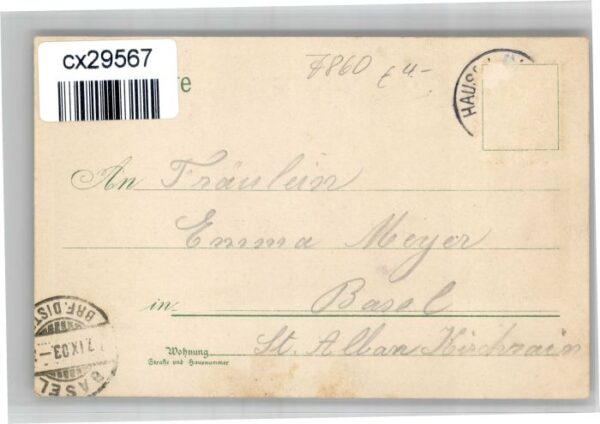 cx29567
7860 £ 4.-
HAUS
An Fräulein
Emma Meyer
in Basel
Wohnung St. Alban Kirchrain
Straße und Hausnummer
BASEL
7.IX.03
BRF. DIST